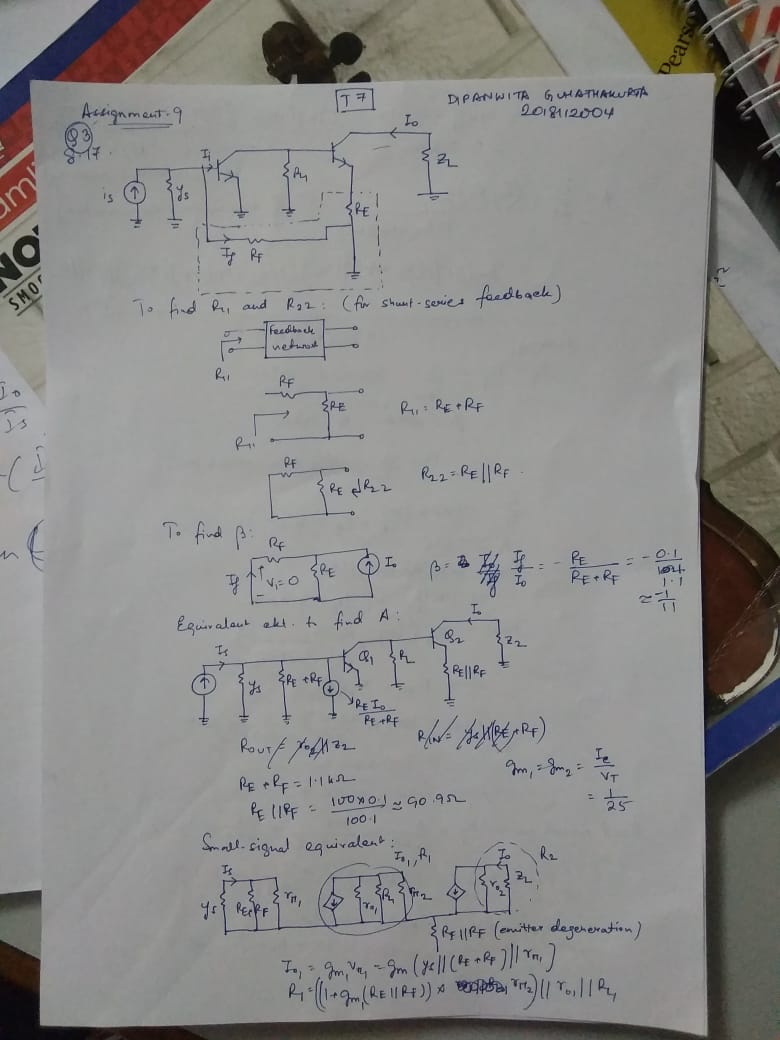 Assignment-9
T 7
DIPANWITA GUHATHAKURTA
2018112004
Q3
8.17.
is
ys
I1
RL1
Io
ZL
RE
If RF
To find R11 and R22: (for shunt-series feedback)
Feedback
network
R11
RF
RE
R11
R11 = RE + RF
RF
RE
R22
R22 = RE || RF.
To find β:
RF
If
V1=0
RE
Io
β = If/Io = - RE/(RE+RF) = - 0.1/1.1
≈ -1/11
Equivalent ckt. to find A:
Is
ys
RE+RF
RE Io/(RE+RF)
Q1
RL
Q2
Io
ZL
RE||RF
RE + RF = 1.1 kΩ
RE || RF = 100×0.1/100.1 ≈ 90.9Ω
gm1 = gm2 = Ic/VT
= 1/25
Small-signal equivalent:
Is
ys
RE+RF
rπ1
Io1, R1
ro1
RL1
rπ2
Io
R2
ro2
ZL
RE||RF (emitter degeneration)
Io1 = gm1 vπ1 = gm (ys || (RE+RF) || rπ1)
R1 = ((1+gm1(RE||RF)) × rπ2) || ro1 || RL1
Pearso
NO
SMOO
am
Io
Is